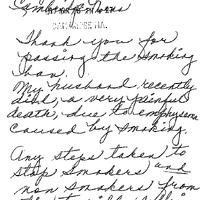 Thank you for
passing the smoking
law.
My husband recently
died, a very painful
death, due to emphysema
caused by smoking.
Any steps taken to
stop smokers and
non smokers from